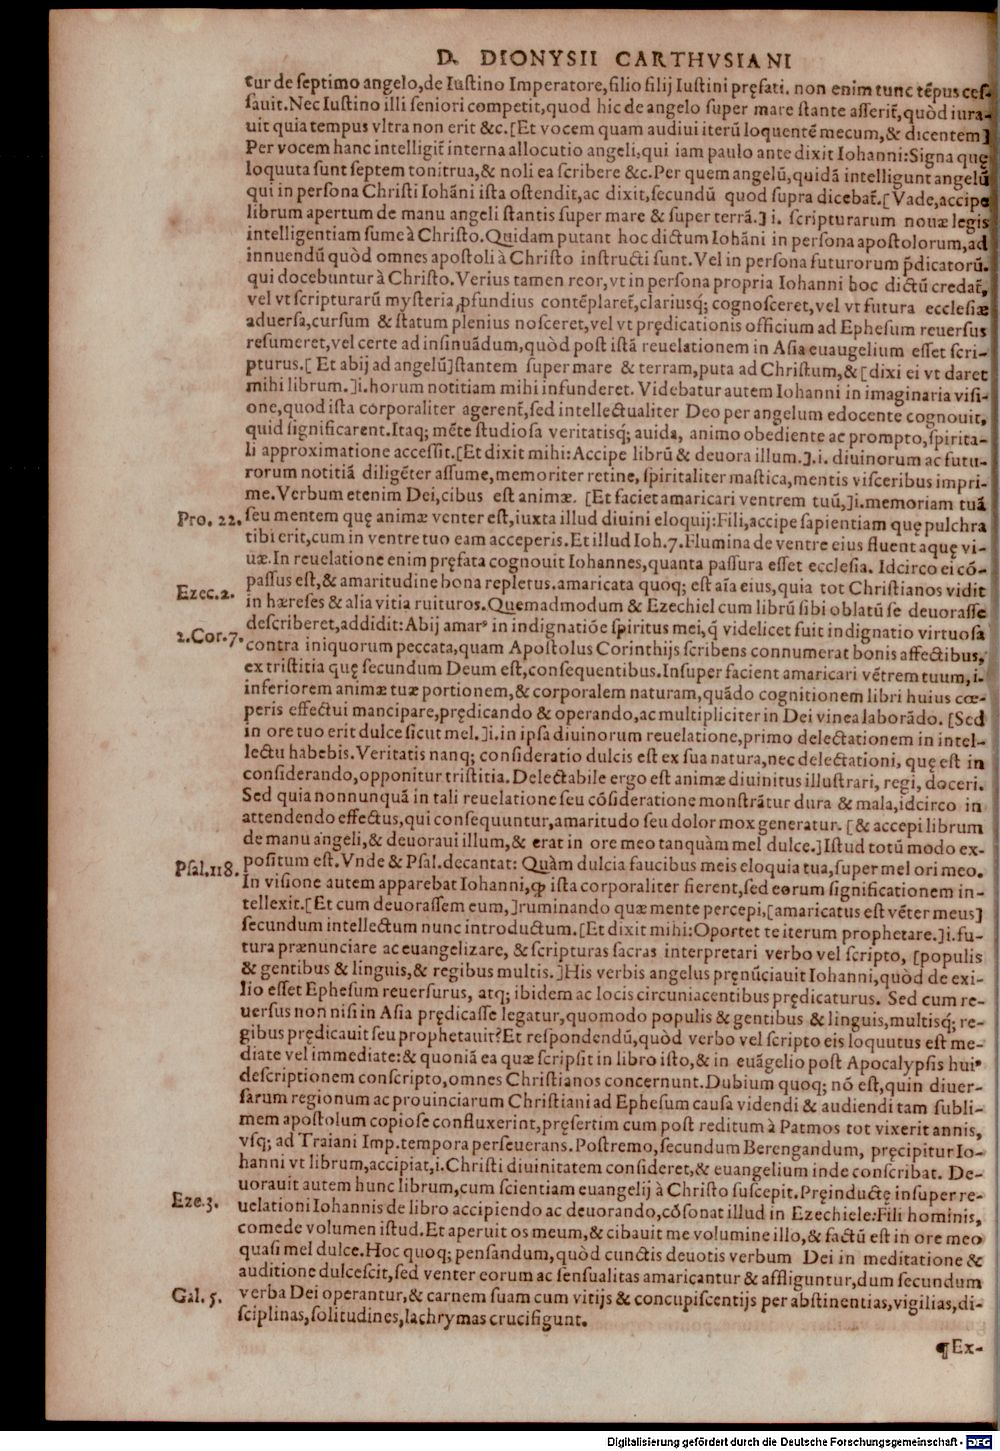 D. DIONYSII CARTHVSIANI
tur de septimo angelo,de Iustino Imperatore,filio filij Iustini pręfati. non enim tunc tẽpus ces-
sauit.Nec Iustino illi seniori competit,quod hic de angelo super mare stante asserit̃,quòd iura-
uit quia tempus vltra non erit &c.[Et vocem quam audiui iterũ loquentẽ mecum,& dicentem]
Per vocem hanc intelligit̃ interna allocutio angeli,qui iam paulo ante dixit Iohanni:Signa quę
loquuta sunt septem tonitrua,& noli ea scribere &c.Per quem angelũ,quidã intelligunt angelũ
qui in persona Christi Iohãni ista ostendit,ac dixit,secundũ quod supra dicebat̃.[Vade,accipe
librum apertum de manu angeli stantis super mare & super terrã.] i. scripturarum nouæ legis
intelligentiam sume à Christo.Quidam putant hoc dictum Iohãni in persona apostolorum,ad
innuendũ quòd omnes apostoli à Christo instructi sunt.Vel in persona futurorum p̃dicatorũ.
qui docebuntur à Christo.Verius tamen reor,vt in persona propria Iohanni hoc dictũ credat̃,
vel vt scripturarũ mysteria,ꝓfundius contẽplaret̃,clariusq; cognosceret,vel vt futura ecclesiæ
aduersa,cursum & statum plenius nosceret,vel vt prędicationis officium ad Ephesum reuersus
resumeret,vel certe ad insinuãdum,quòd post istã reuelationem in Asia euaugelium esset scri-
pturus.[ Et abij ad angelũ]stantem super mare & terram,puta ad Christum,& [dixi ei vt daret
mihi librum.]i.horum notitiam mihi infunderet. Videbatur autem Iohanni in imaginaria visi-
one,quod ista corporaliter agerent̃,sed intellectualiter Deo per angelum edocente cognouit,
quid significarent.Itaq; mẽte studiosa veritatisq; auida, animo obediente ac prompto,spirita-
li approximatione accessit.[Et dixit mihi:Accipe librũ & deuora illum.].i. diuinorum ac futu-
rorum notitiã diligẽter assume,memoriter retine, spiritaliter mastica,mentis visceribus impri-
me.Verbum etenim Dei,cibus est animæ. [Et faciet amaricari ventrem tuũ,]i.memoriam tuã
Pro. 22. seu mentem quę animæ venter est,iuxta illud diuini eloquij:Fili,accipe sapientiam quę pulchra
tibi erit,cum in ventre tuo eam acceperis.Et illud Ioh.7.Flumina de ventre eius fluent aquę vi-
uæ.In reuelatione enim pręfata cognouit Iohannes,quanta passura esset ecclesia. Idcirco ei cõ-
Ezec.2. passus est,& amaritudine bona repletus.amaricata quoq; est aĩa eius,quia tot Christianos vidit
in hæreses & alia vitia ruituros.Quemadmodum & Ezechiel cum librũ sibi oblatũ se deuorasse
describeret,addidit:Abij amarꝰ in indignatiõe spiritus mei,q̃ videlicet fuit indignatio virtuosa
2.Cor.7. contra iniquorum peccata,quam Apostolus Corinthijs scribens connumerat bonis affectibus,
ex tristitia quę secundum Deum est,consequentibus.Insuper facient amaricari vẽtrem tuum,i.
inferiorem animæ tuæ portionem,& corporalem naturam,quãdo cognitionem libri huius cœ-
peris effectui mancipare,prędicando & operando,ac multipliciter in Dei vinea laborãdo. [Sed
in ore tuo erit dulce sicut mel.]i.in ipsa diuinorum reuelatione,primo delectationem in intel-
lectu habebis.Veritatis nanq; consideratio dulcis est ex sua natura,nec delectationi, quę est in
considerando,opponitur tristitia.Delectabile ergo est animæ diuinitus illustrari, regi, doceri.
Sed quia nonnunquã in tali reuelatione seu cõsideratione monstrãtur dura & mala,idcirco in
attendendo effectus,qui consequuntur,amaritudo seu dolor mox generatur. [& accepi librum
de manu angeli,& deuoraui illum,& erat in ore meo tanquàm mel dulce.]Istud totũ modo ex-
Psal.118. positum est.Vnde & Psal.decantat: Quàm dulcia faucibus meis eloquia tua,super mel ori meo.
In visione autem apparebat Iohanni,ꝙ ista corporaliter fierent,sed eorum significationem in-
tellexit.[Et cum deuorassem eum,]ruminando quæ mente percepi,[amaricatus est vẽter meus]
secundum intellectum nunc introductum.[Et dixit mihi:Oportet te iterum prophetare.]i.fu-
tura prænunciare ac euangelizare, & scripturas sacras interpretari verbo vel scripto, [populis
& gentibus & linguis,& regibus multis.]His verbis angelus pręnũciauit Iohanni,quòd de exi-
lio esset Ephesum reuersurus, atq; ibidem ac locis circuniacentibus prędicaturus. Sed cum re-
uersus non nisi in Asia prędicasse legatur,quomodo populis & gentibus & linguis,multisq; re-
gibus prędicauit seu prophetauit?Et respondendũ,quòd verbo vel scripto eis loquutus est me-
diate vel immediate:& quoniã ea quæ scripsit in libro isto,& in euãgelio post Apocalypsis huiꝰ
descriptionem conscripto,omnes Christianos concernunt.Dubium quoq; nõ est,quin diuer-
sarum regionum ac prouinciarum Christiani ad Ephesum causa videndi & audiendi tam subli-
mem apostolum copiose confluxerint,pręsertim cum post reditum à Patmos tot vixerit annis,
vsq; ad Traiani Imp.tempora perseuerans.Postremo,secundum Berengandum, pręcipitur Io-
hanni vt librum,accipiat,i.Christi diuinitatem consideret,& euangelium inde conscribat. De-
uorauit autem hunc librum,cum scientiam euangelij à Christo suscepit.Pręinductę insuper re-
Eze.3. uelationi Iohannis de libro accipiendo ac deuorando,cõsonat illud in Ezechiele:Fili hominis,
comede volumen istud.Et aperuit os meum,& cibauit me volumine illo,& factũ est in ore meo
quasi mel dulce.Hoc quoq; pensandum,quòd cunctis deuotis verbum Dei in meditatione &
auditione dulcescit,sed venter eorum ac sensualitas amaricantur & affliguntur,dum secundum
Gal. 5. verba Dei operantur,& carnem suam cum vitijs & concupiscentijs per abstinentias,vigilias,di-
sciplinas,solitudines,lachrymas crucifigunt.
¶Ex-
Digitalisierung gefördert durch die Deutsche Forschungsgemeinschaft - DFG